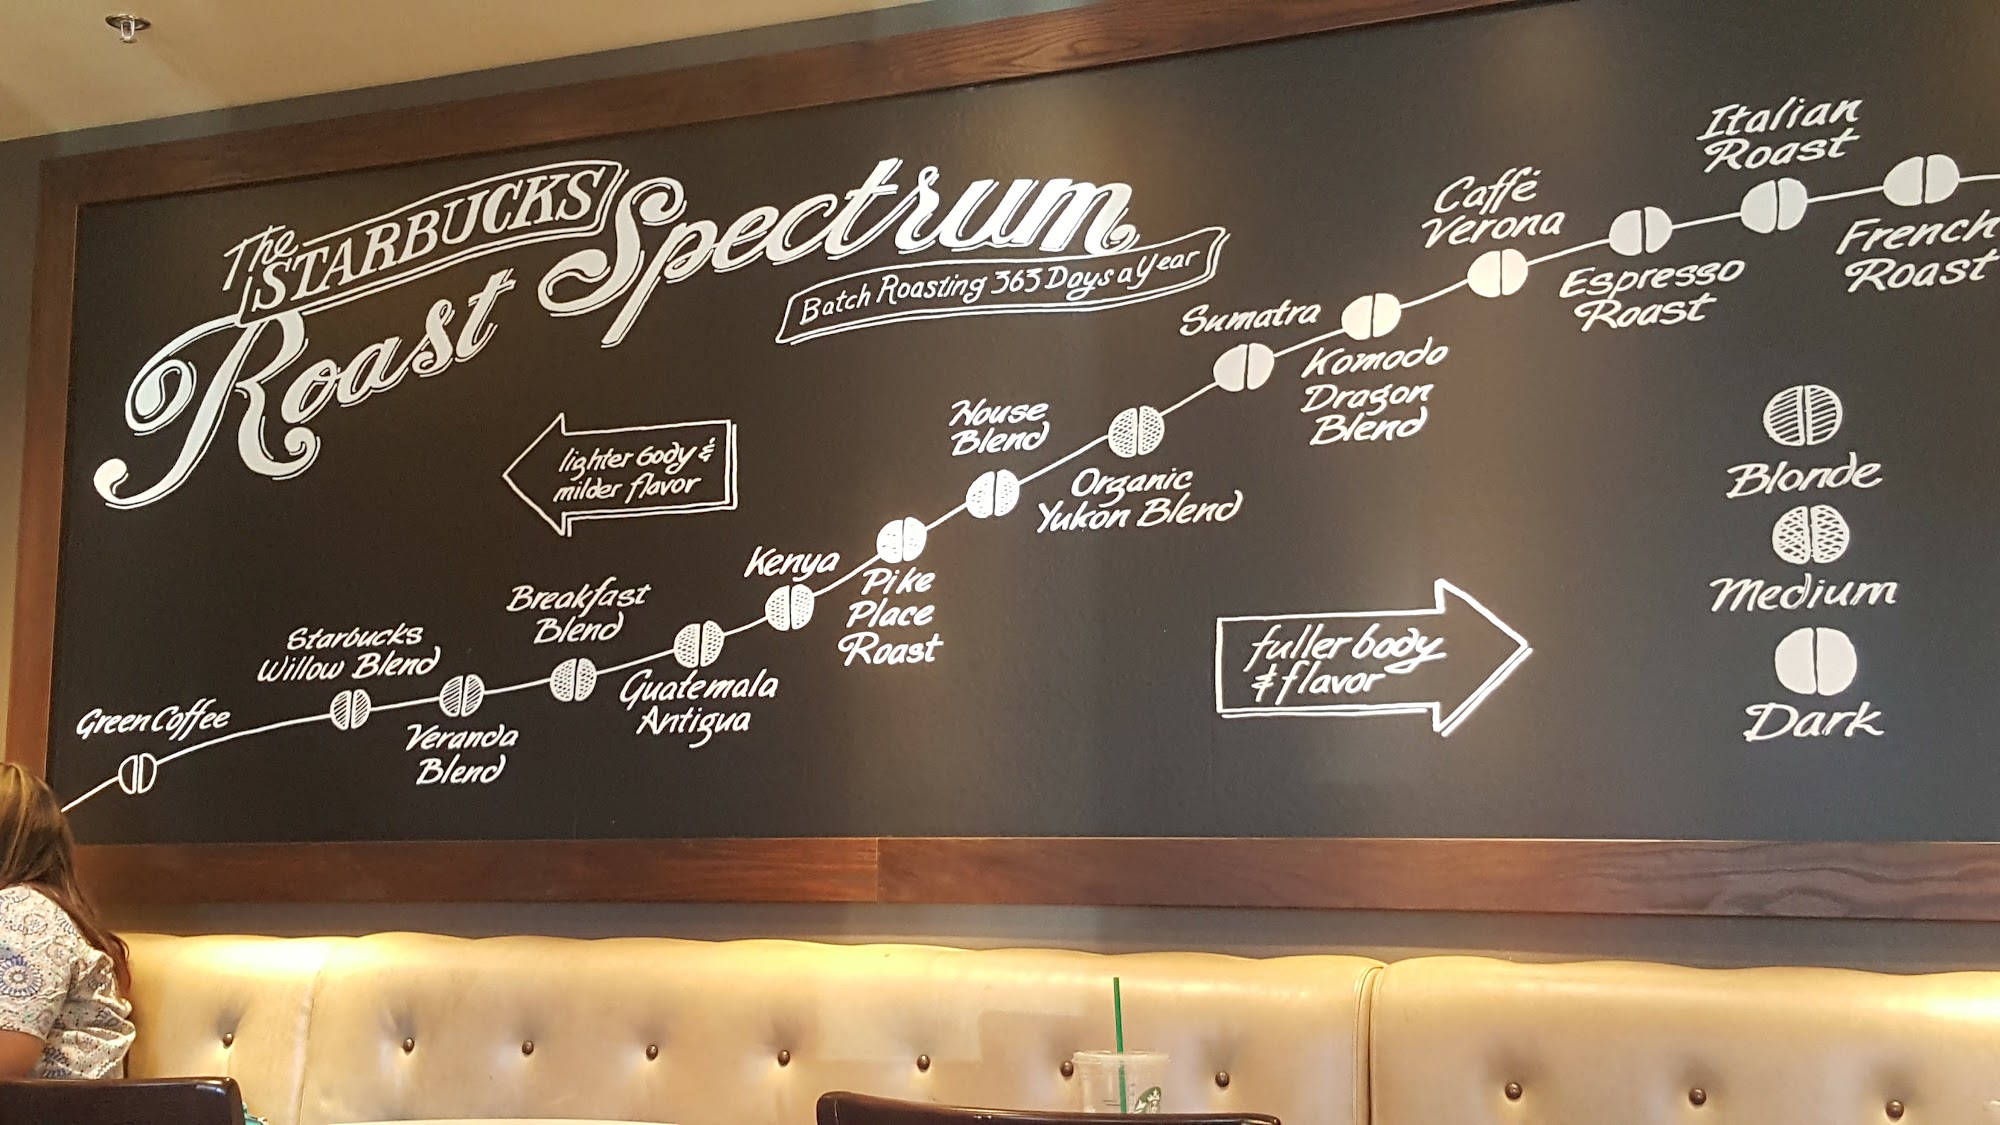 The
STARBUCKS
Roast Spectrum
Batch Roasting 363 Days a Year
lighter body &
milder flavor
Green Coffee
Starbucks
Willow Blend
Veranda
Blend
Breakfast
Blend
Guatemala
Antigua
Kenya
Pike
Place
Roast
House
Blend
Organic
Yukon Blend
Sumatra
Komodo
Dragon
Blend
Caffé
Verona
Espresso
Roast
Italian
Roast
French
Roast
fuller body
& flavor
Blonde
Medium
Dark